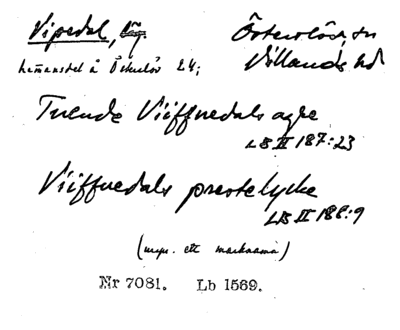 Vipedal, läg. Österslöv, sn
hemansdel å Österlöv 24; Villands hd
Tuende Viiffuedals agre
LB II 187:23
Viiffuedals prestelycke
LB II 188:9
(urspr. ett marknamn)
Nr 7081. Lb 1569.